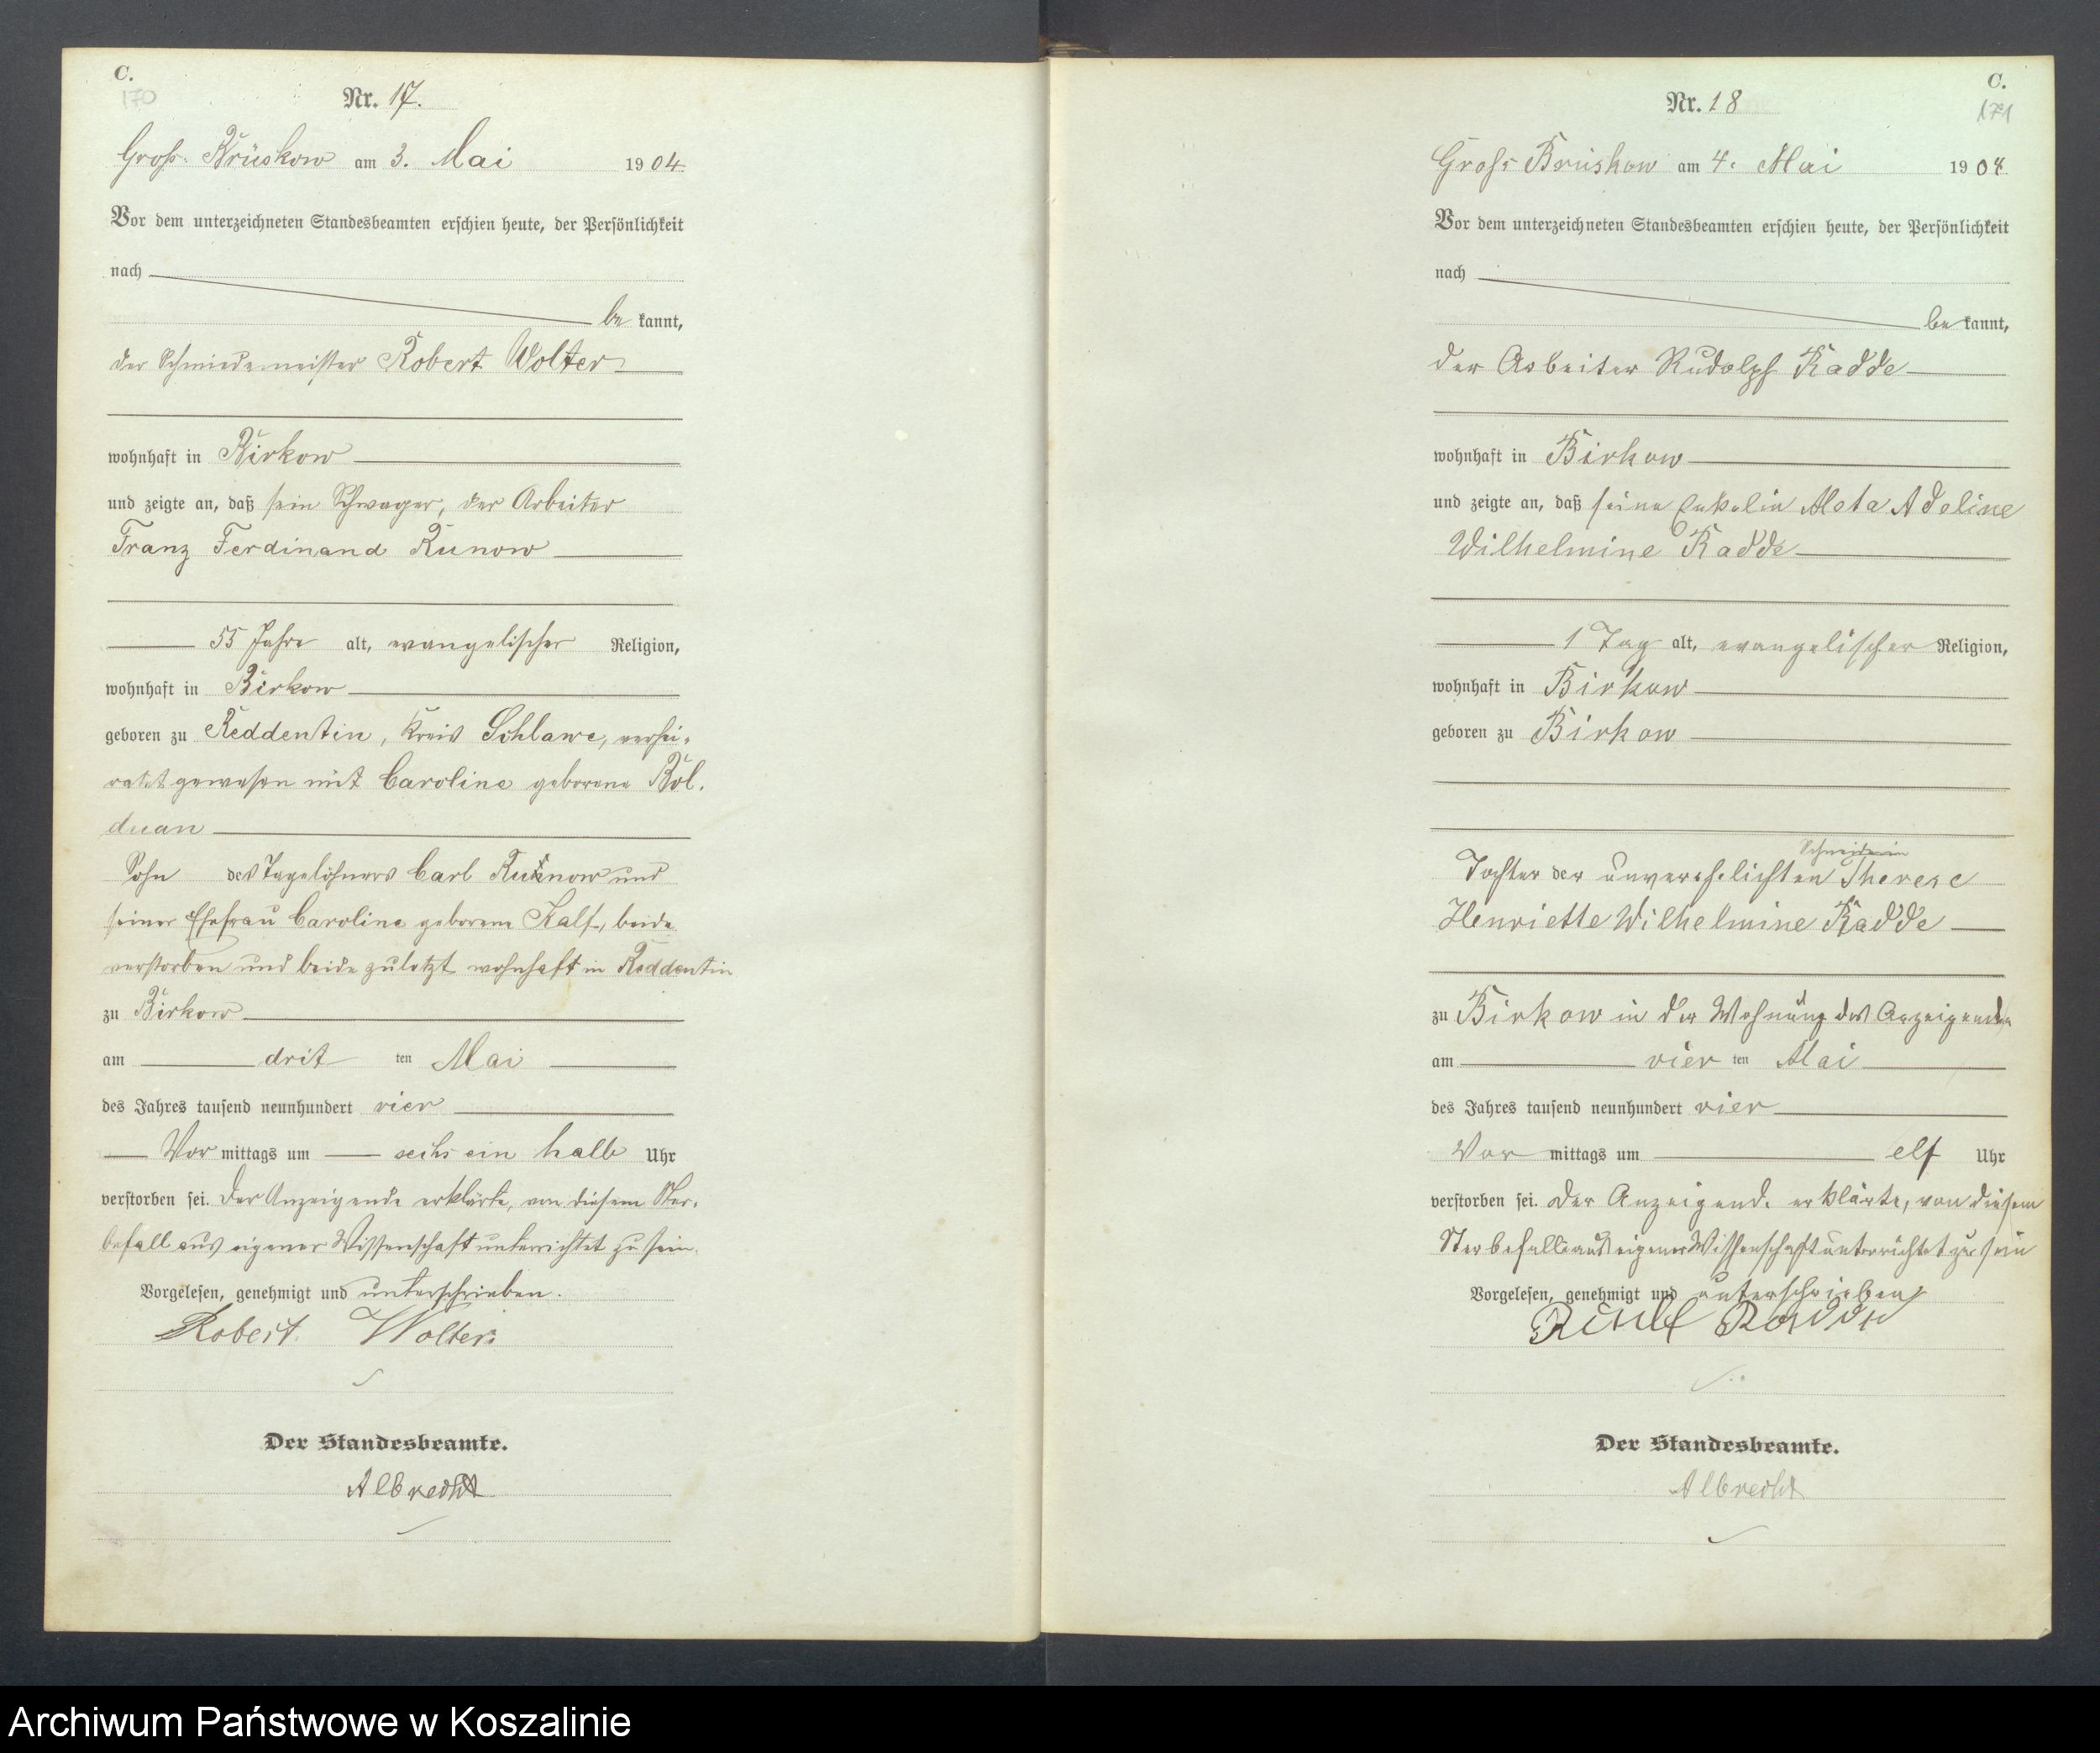 C.
170
Nr. 17.
Groß Brüskow am 3. Mai 1904
Vor dem unterzeichneten Standesbeamten erschien heute, der Persönlichkeit
nach
be kannt,
der Schmiedemeister Robert Wolter
wohnhaft in Birkow
und zeigte an, daß sein Schwager, der Arbeiter
Franz Ferdinand Kunow
55 Jahre alt, evangelischer Religion,
wohnhaft in Birkow
geboren zu Reddentin, Kreis Schlawe, verhei-
ratet gewesen mit Caroline geborene Bol-
duan
Sohn des Tagelöhners Carl Kunow und
seiner Ehefrau Caroline geborene Kalf, beide
verstorben und beide zuletzt wohnhaft in Reddentin
zu Birkow
am drit ten Mai
des Jahres tausend neunhundert vier
Vor mittags um sechs ein halb Uhr
verstorben sei. Der Anzeigende erklärte, von diesem Ster-
befall aus eigener Wissenschaft unterrichtet zu sein.
Vorgelesen, genehmigt und unterschrieben.
Robert Wolter
Der Standesbeamte.
Albrecht
C.
171
Nr. 18
Groß Brüskow am 4. Mai 1904
Vor dem unterzeichneten Standesbeamten erschien heute, der Persönlichkeit
nach
be kannt,
der Arbeiter Rudolph Radde
wohnhaft in Birkow
und zeigte an, daß seine Enkelin Meta Adeline
Wilhelmine Radde
1 Tag alt, evangelischer Religion,
wohnhaft in Birkow
geboren zu Birkow
Tochter der unverehelichten Therese
Henriette Wilhelmine Radde
zu Birkow in der Wohnung des Anzeigenden
am vier ten Mai
des Jahres tausend neunhundert vier
Vor mittags um elf Uhr
verstorben sei. Der Anzeigende erklärte, von diesem
Sterbefalle aus eigener Wissenschaft unterrichtet zu sein
Vorgelesen, genehmigt und unterschrieben
Radde
Der Standesbeamte.
Albrecht
Archiwum Państwowe w Koszalinie